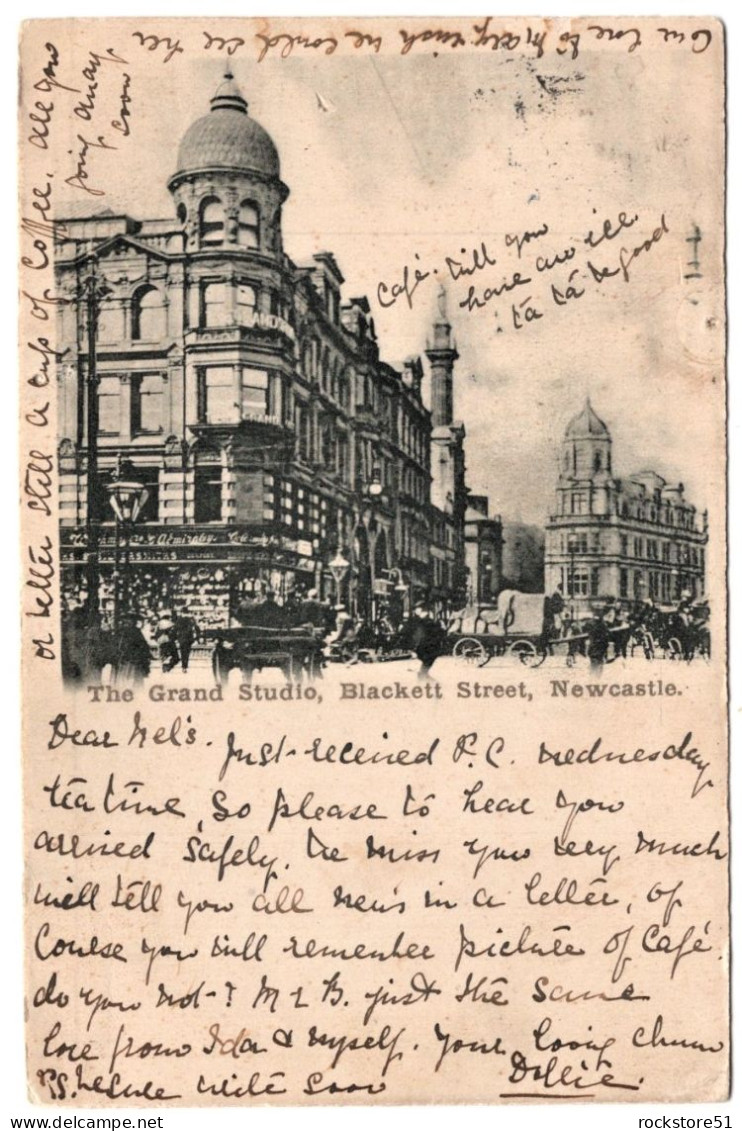 Give love to Mary, wish we could see her
all you
going away
soon
or letter still a cup of coffee.
Café. Will you
have are ill
ta ta be good
GRAND
The Grand Studio, Blackett Street, Newcastle.
Dear Nel's. Just received P.C. Wednesday
tea time, So please to hear you
arrived safely. We miss you very much
will tell you all news in a letter, of
Course you will remember picture of Café.
do you not? M & B. just the same
love from Ida & myself. Your loving chum
Dollie.
P.S. be sure write soon
rockstore51